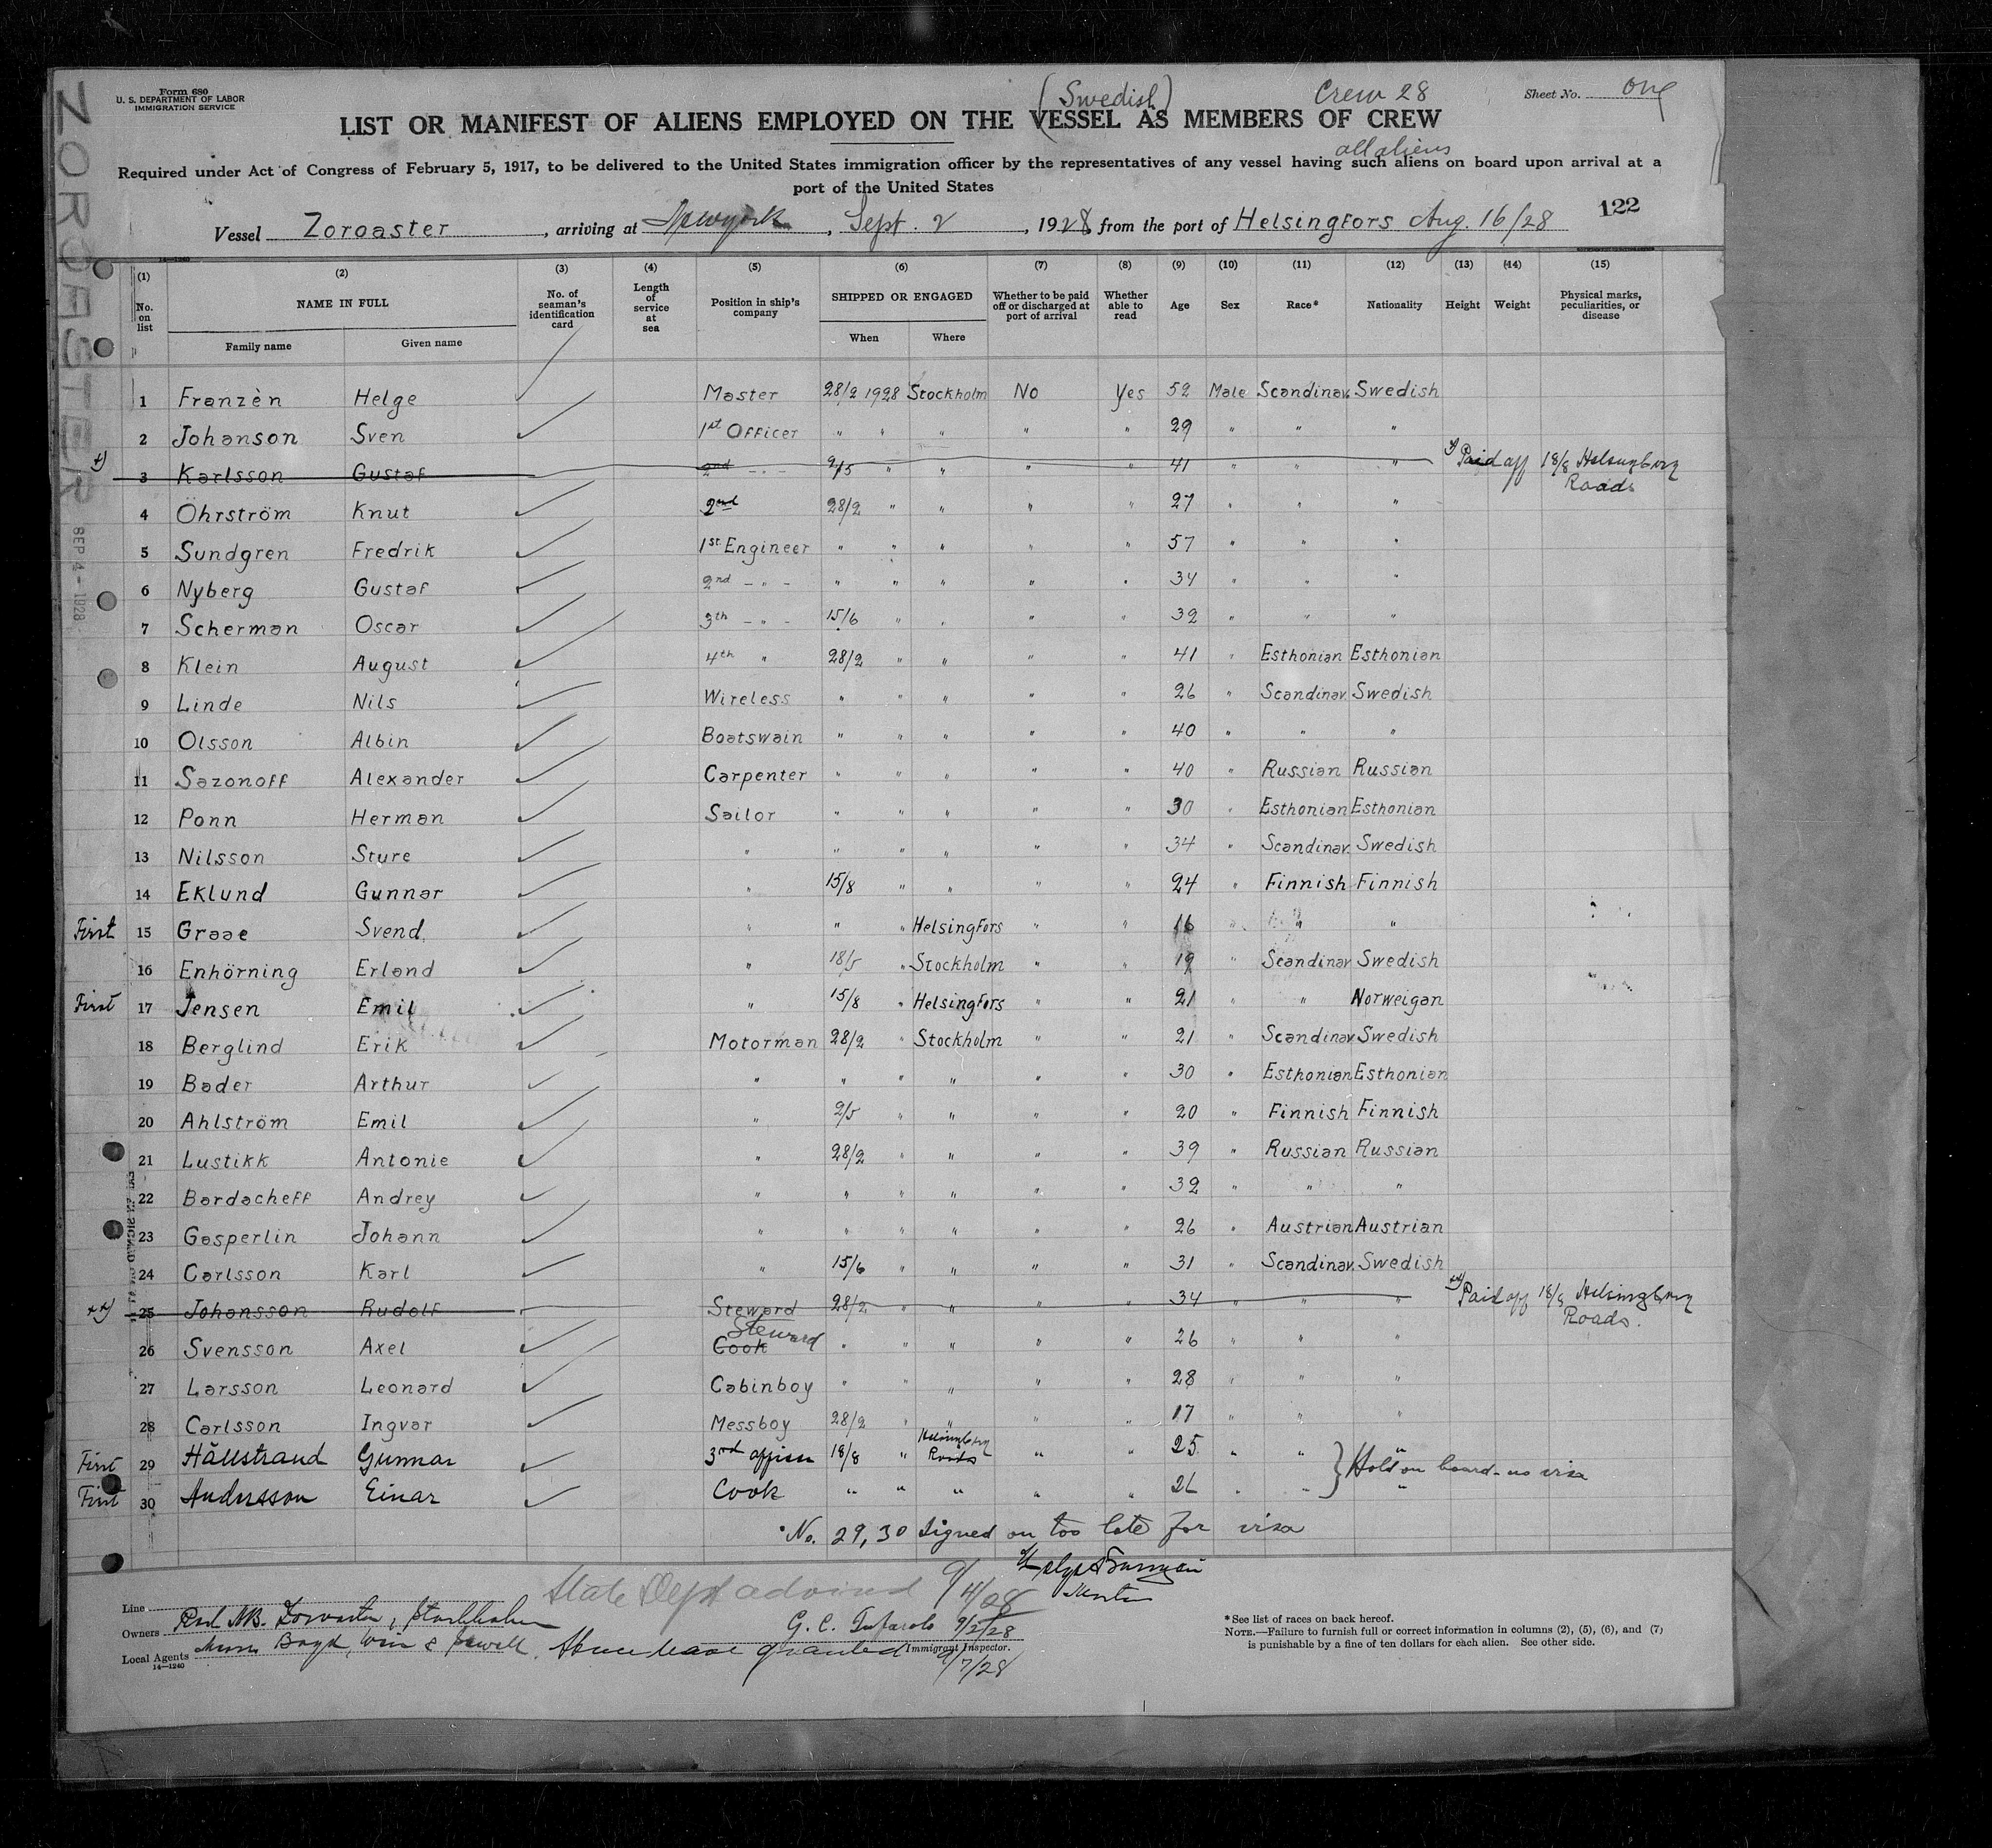 Form 680
U. S. DEPARTMENT OF LABOR
IMMIGRATION SERVICE
(Swedish)
Crew 28
Sheet No. One
LIST OR MANIFEST OF ALIENS EMPLOYED ON THE VESSEL AS MEMBERS OF CREW
all aliens
Required under Act of Congress of February 5, 1917, to be delivered to the United States immigration officer by the representatives of any vessel having such aliens on board upon arrival at a
port of the United States
122
Vessel Zoroaster, arriving at Newyork, Sept. 2, 1928, from the port of Helsingfors Aug. 16/28
ZOROASTER
SEP 4 - 1928
14-1240
(1) (2) (3) (4) (5) (6) (7) (8) (9) (10) (11) (12) (13) (14) (15)
No. on list NAME IN FULL No. of seaman's identification card Length of service at sea Position in ship's company SHIPPED OR ENGAGED Whether to be paid off or discharged at port of arrival Whether able to read Age Sex Race* Nationality Height Weight Physical marks, peculiarities, or disease
Family name Given name When Where
1 Franzèn Helge Master 28/2 1928 Stockholm No Yes 52 Male Scandinav. Swedish
2 Johanson Sven 1st Officer " " " " " 29 " " "
x) 3 Karlsson Gustaf 2nd - " - 2/5 " " " " 41 " " " x) Paid off 18/8 Helsingborg Roads
4 Öhrström Knut 2nd 28/2 " " " " 27 " " "
5 Sundgren Fredrik 1st Engineer " " " " " 57 " " "
6 Nyberg Gustaf 2nd - " - " " " " " 34 " " "
7 Scherman Oscar 3th - " - 15/6 " " " " 32 " " "
8 Klein August 4th " 28/2 " " " " 41 " Esthonian Esthonian
9 Linde Nils Wireless " " " " " 26 " Scandinav. Swedish
10 Olsson Albin Boatswain " " " " " 40 " " "
11 Sazonoff Alexander Carpenter " " " " " 40 " Russian Russian
12 Ponn Herman Sailor " " " " " 30 " Esthonian Esthonian
13 Nilsson Sture " " " " " " 34 " Scandinav. Swedish
14 Eklund Gunnar " 15/8 " " " " 24 " Finnish Finnish
First 15 Graae Svend " " " Helsingfors " " 16 " " "
16 Enhörning Erland " 18/5 " Stockholm " " 19 " Scandinav Swedish
First 17 Jensen Emil " 15/8 " Helsingfors " " 21 " " Norweigan
18 Berglind Erik Motorman 28/2 " Stockholm " " 21 " Scandinav. Swedish
19 Bader Arthur " " " " " " 30 " Esthonian Esthonian
20 Ahlström Emil " 2/5 " " " " 20 " Finnish Finnish
21 Lustikk Antonie " 28/2 " " " " 39 " Russian Russian
22 Bardacheff Andrey " " " " " " 32 " " "
23 Gasperlin Johann " " " " " " 26 " Austrian Austrian
24 Carlsson Karl " 15/6 " " " " 31 " Scandinav. Swedish
xx) 25 Johansson Rudolf Steward 28/2 " " " " 34 " " " xx) Paid off 18/8 Helsingborg Roads.
26 Svensson Axel Cook Steward " " " " " 26 " " "
27 Larsson Leonard Cabinboy " " " " " 28 " " "
28 Carlsson Ingvar Messboy 28/2 " " " " 17 " " "
First 29 Hällstrand Gunnar 3rd officer 18/8 " Helsingborg Roads " " 25 " " "
First 30 Andersson Einar Cook " " " " " 26 " " "
} Hold on board - no visa
No. 29, 30 signed on too late for visa
Helge Franzén
Master
State Dept advised 9/4/28
Line
Owners Red. AB. Zoroaster, Stockholm
G. C. Tufarolo 9/2/28
Immigrant Inspector.
Local Agents Messrs Boyd, Weir & Sewell.
Shore leave granted 9/7/28
14-1240
*See list of races on back hereof.
NOTE.—Failure to furnish full or correct information in columns (2), (5), (6), and (7)
is punishable by a fine of ten dollars for each alien. See other side.